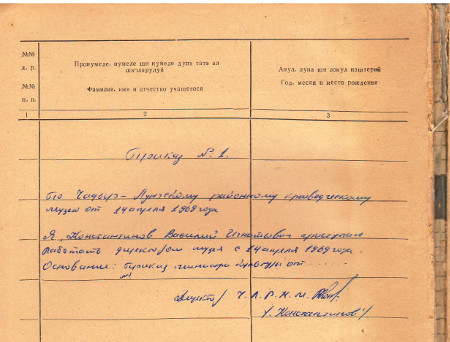 №№
д. р.
№№
п. п.
Пронумеле, нумеле ши нумеле дупа тата ал
школарулуй
Фамилия, имя и отчество учащегося
Анул, луна ши локул нащерий
Год, месяц и место рождения
1 2 3
Приказ № 1.
По Чадыр-Лунгскому районному краеведческому
музею от 14 апреля 1969 года
Я, Константинов Василий Игнатьевич приступаю
работать директором музея с 14 апреля 1969 года.
Основание: приказ министра культуры от
№
Директор Ч. Л. Р. К. М.
/. Константинов /